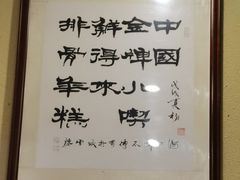 中國
金牌小喫
鮮得來
排骨年糕
戊戌夏初